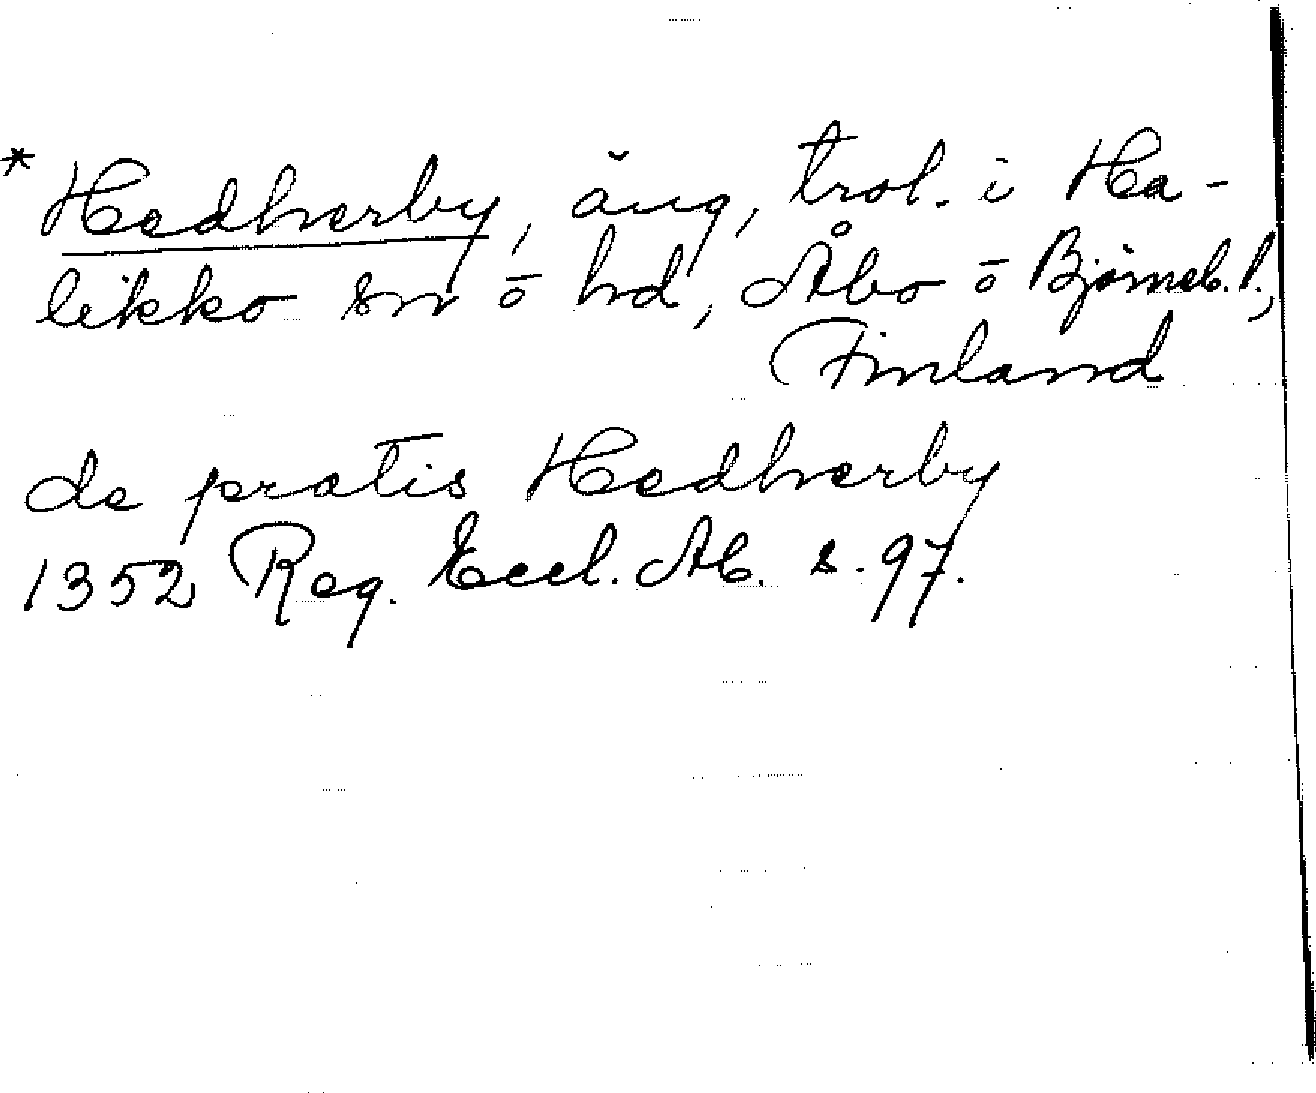 * Hedherby, äng, trol. i Ha-
likko sn o hd, Åbo o Björneb. l.,
Finland
de pratis Hedherby
1352 Reg. Eccl. Ab. s. 97.